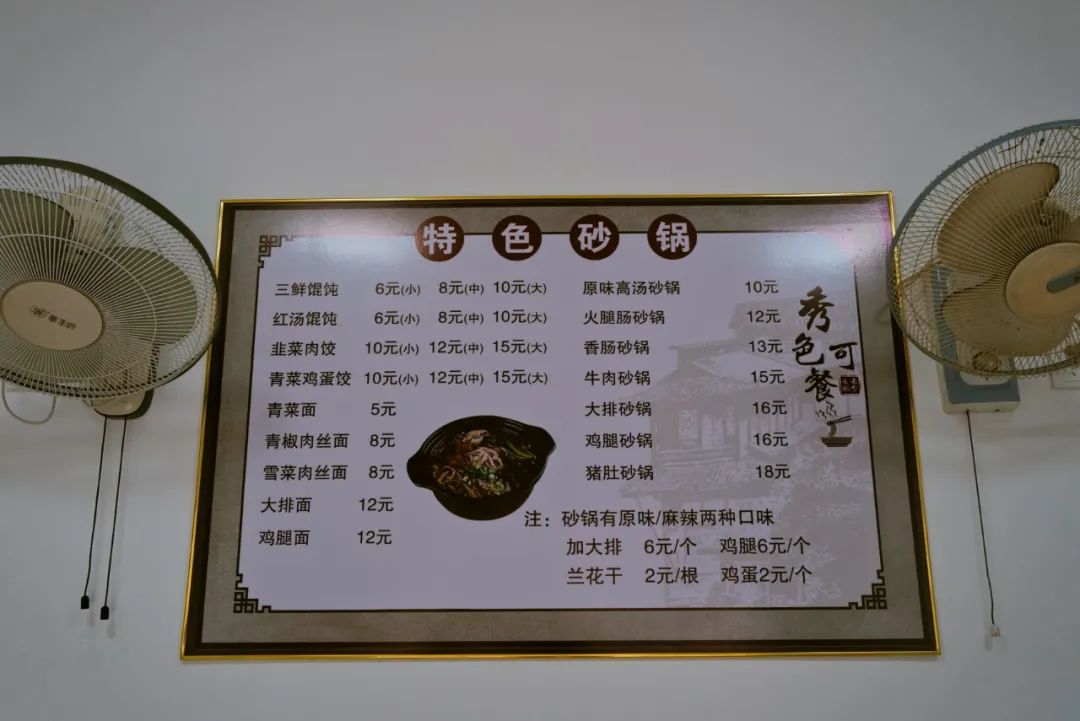 特色砂锅
三鲜馄饨 6元(小) 8元(中) 10元(大)
红汤馄饨 6元(小) 8元(中) 10元(大)
韭菜肉饺 10元(小) 12元(中) 15元(大)
青菜鸡蛋饺 10元(小) 12元(中) 15元(大)
青菜面 5元
青椒肉丝面 8元
雪菜肉丝面 8元
大排面 12元
鸡腿面 12元
原味高汤砂锅 10元
火腿肠砂锅 12元
香肠砂锅 13元
牛肉砂锅 15元
大排砂锅 16元
鸡腿砂锅 16元
猪肚砂锅 18元
注：砂锅有原味/麻辣两种口味
加大排 6元/个 鸡腿6元/个
兰花干 2元/根 鸡蛋2元/个
秀色可餐